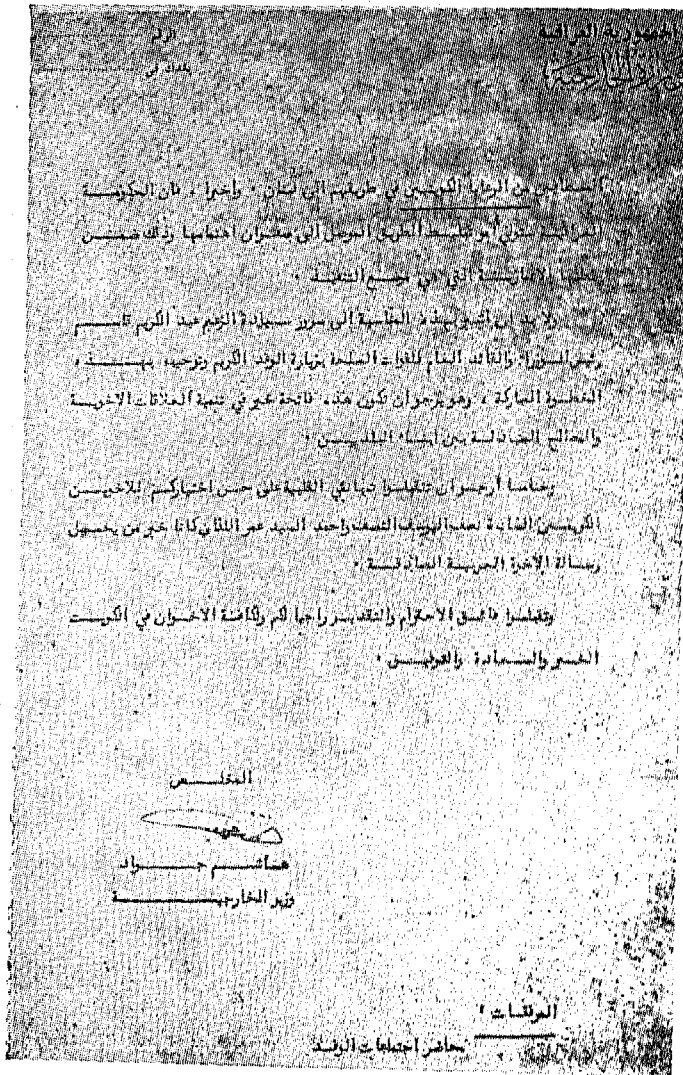 الجمهورية العراقية
وزارة الخارجية
الرقم
بغداد في
من الرعايا الكويتيين في طريقهم الى لبنان . واخيرا ، فان الحكومة
العراقية ستولي امر تبليط الطريق الموصل الى صفوان اهتمامها وذلك ضمن
التي هي موضع التنفيذ .
ولا بد ان اشير بهذه المناسبة الى سرور سيادة الزعيم عبد الكريم قاسم
رئيس الوزراء والقائد العام للقوات المسلحة بزيارة الوفد الكريم وتوجيه بهذه
الخطوة المباركة ، وهو يرجو ان تكون هذه فاتحة خير في تنمية العلاقات الاخوية
والمصالح المتبادلة بين ابناء البلدين .
وختاما أرجو ان تتقبلوا تهانئي القلبية على حسن اختياركم للاخوين
الكريمين السادة نصف اليوسف النصف واحمد السيد عمر اللذان كانا خير من يحمل
رسالة الاخوة العربية الصادقة .
وتقبلوا فائق الاحترام والتقدير راجيا لكم ولكافة الاخوان في الكويت
الخير والسعادة والتوفيق .
المخلص
هاشم جواد
وزير الخارجية
المرفقات :
محاضر اجتماعات الوفد